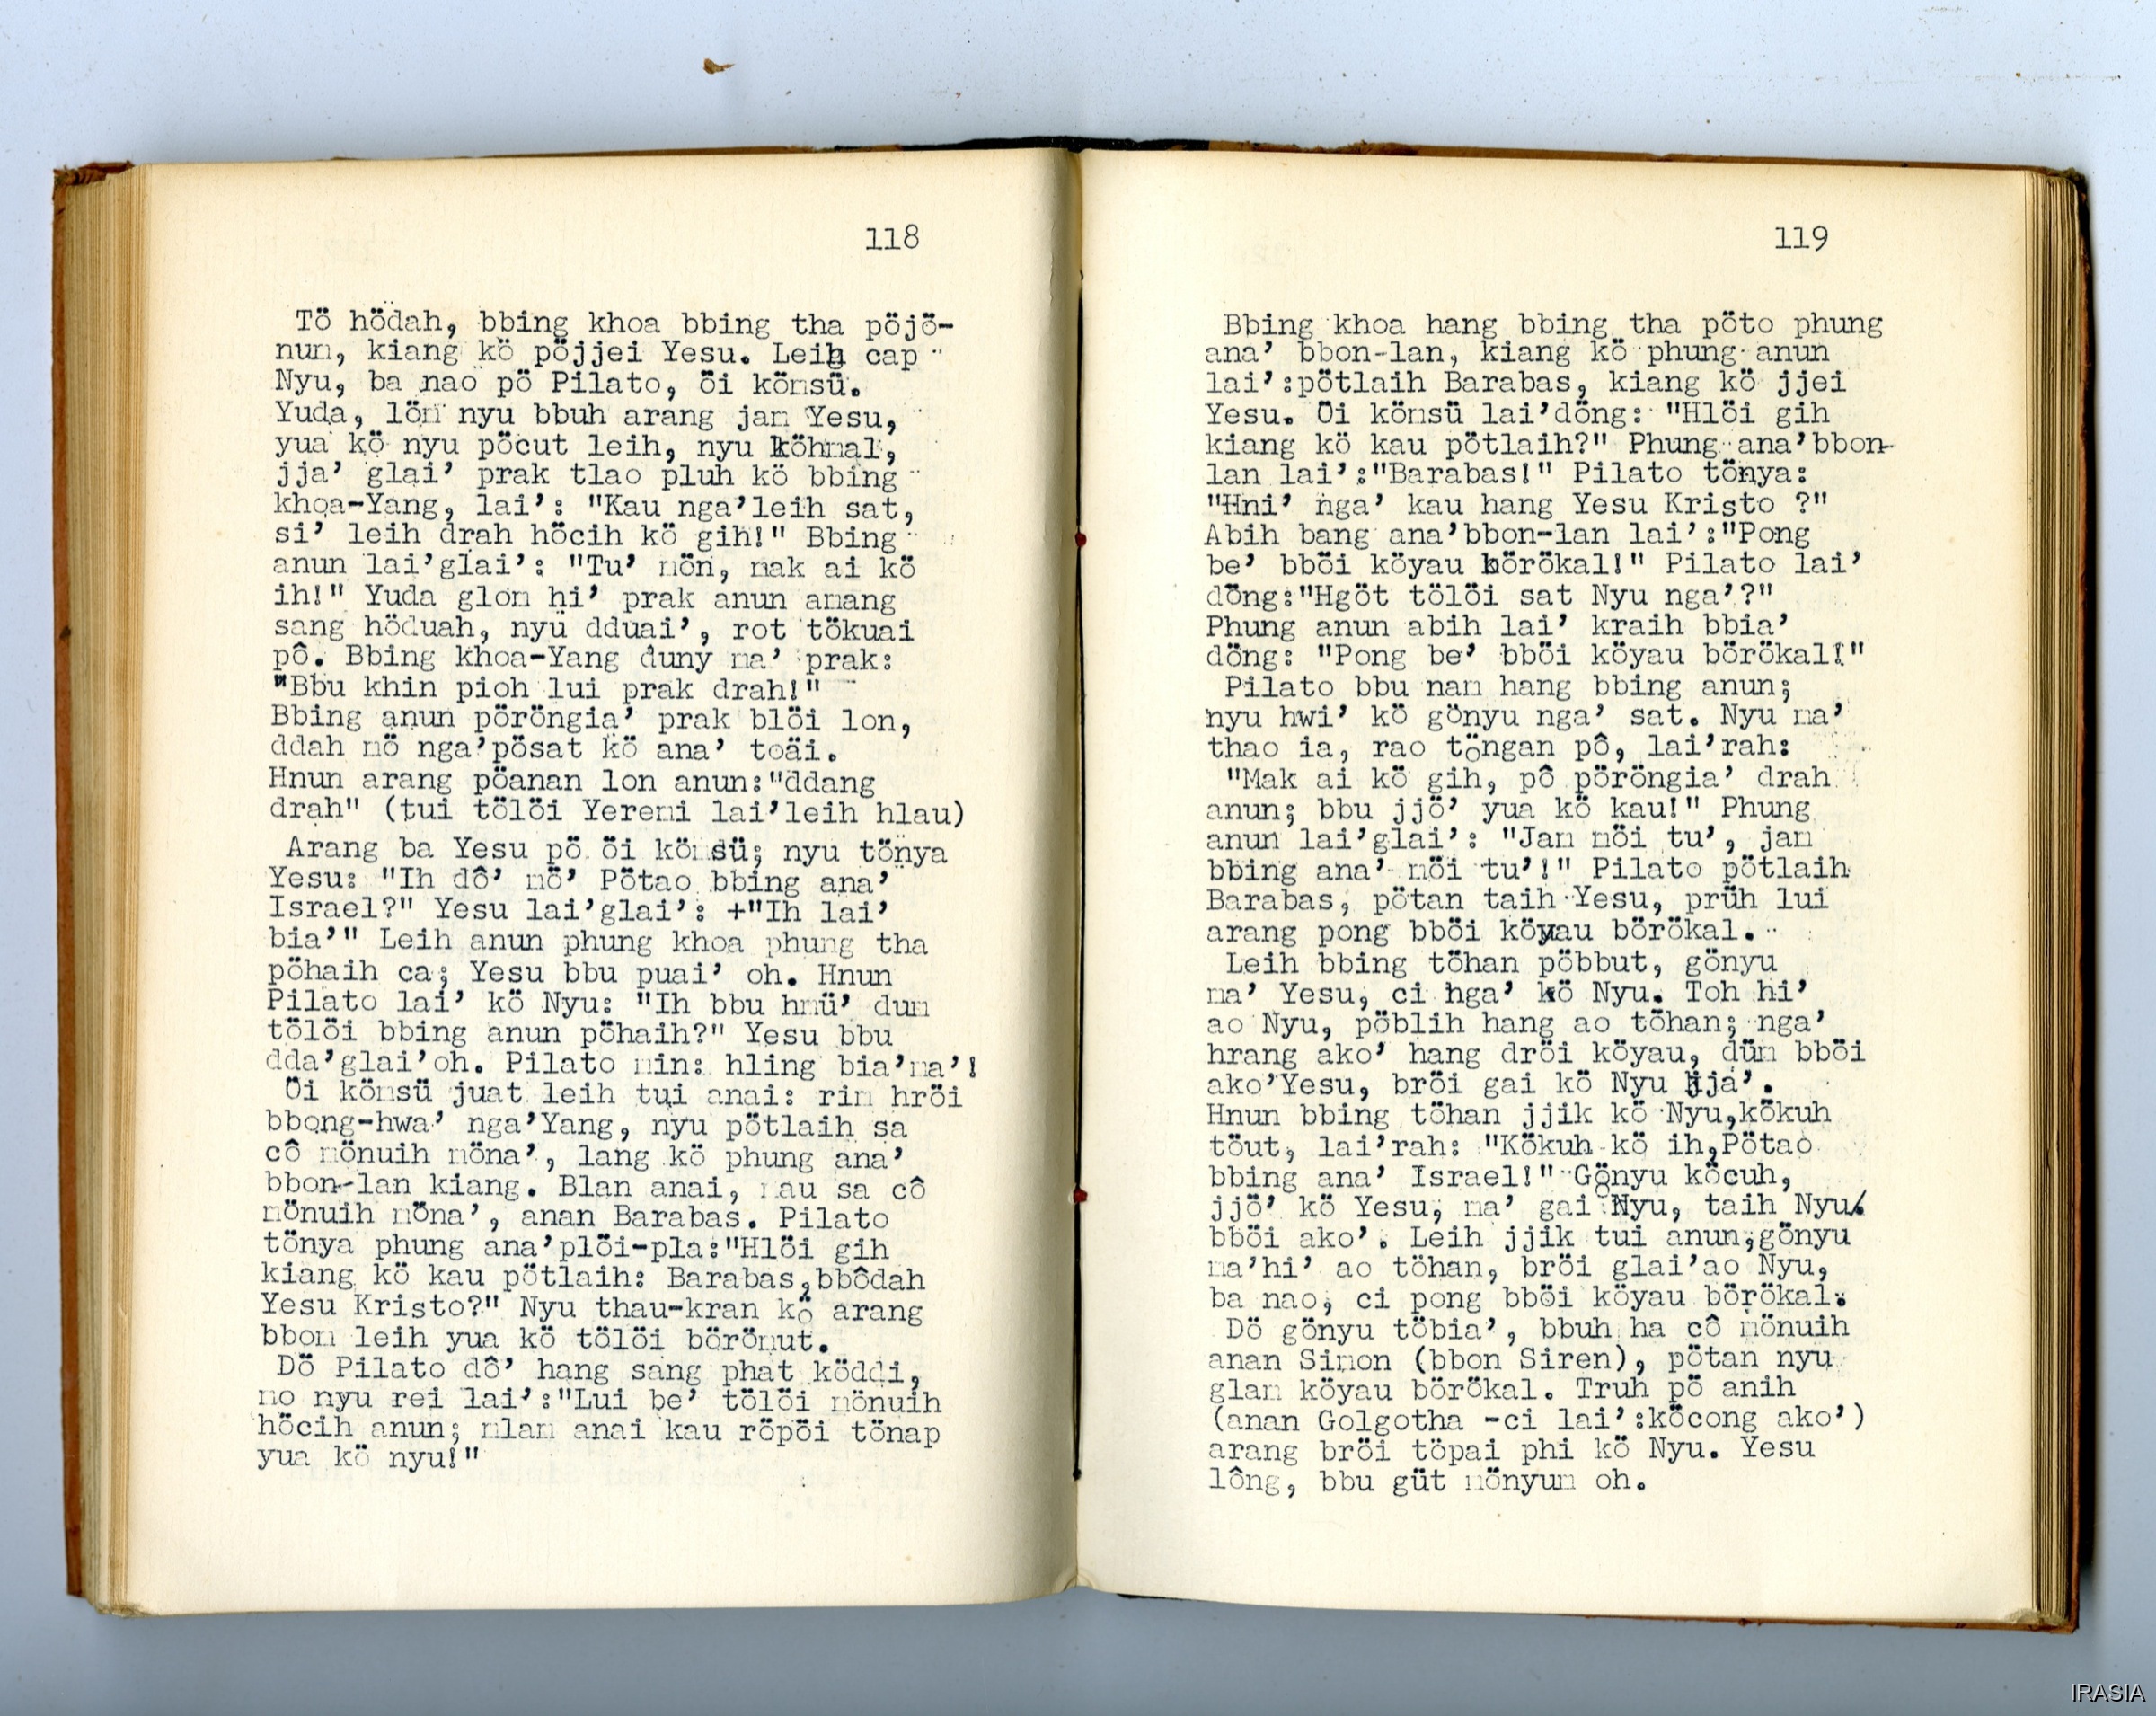 118
Tö hödah, bbing khoa bbing tha pöjö-
num, kiang kö pöjjei Yesu. Leih cap
Nyu, ba nao pö Pilato, öi kömsü.
Yuda, löm nyu bbuh arang jam Yesu,
yua kö nyu pöcut leih, nyu köhmal,
jja’ glai’ prak tlao pluh kö bbing
khoa-Yang, lai’: "Kau nga’leih sat,
si’ leih drah höcih kö gih!" Bbing
anun lai’glai’: "Tu’ mön, mak ai kö
ih!" Yuda glom hi’ prak anun amang
sang höduah, nyu dduai’, rot tökuai
pô. Bbing khoa-Yang duny ma’ prak:
"Bbu khin pioh lui prak drah!"
Bbing anun pöröngia’ prak blöi lon,
ddah mö nga’pösat kö ana’ toäi.
Hnun arang pöanan lon anun:"ddang
drah" (tui tölöi Yeremi lai’leih hlau)
Arang ba Yesu pö öi kömsü; nyu tönya
Yesu: "Ih dô’ mö’ Pötao bbing ana’
Israel?" Yesu lai’glai’: +"Ih lai’
bia’" Leih anun phung khoa phung tha
pöhaih ca; Yesu bbu puai’ oh. Hnun
Pilato lai’ kö Nyu: "Ih bbu hmü’ dum
tölöi bbing anun pöhaih?" Yesu bbu
dda’glai’oh. Pilato min: hling bia’ma’!
Öi kömsü juat leih tui anai: rim hröi
bbong-hwa’ nga’Yang, nyu pötlaih sa
cô mönuih möna’, lang kö phung ana’
bbon-lan kiang. Blan anai, mau sa cô
mönuih möna’, anan Barabas. Pilato
tönya phung ana’plöi-pla:"Hlöi gih
kiang kö kau pötlaih: Barabas,bbôdah
Yesu Kristo?" Nyu thau-kran kö arang
bbom leih yua kö tölöi börömut.
Dö Pilato dô’ hang sang phat köddi,
mo nyu rei lai’:"Lui be’ tölöi mönuih
höcih anun; mlam anai kau röpöi tönap
yua kö nyu!"
119
Bbing khoa hang bbing tha pöto phung
ana’ bbon-lan, kiang kö phung anun
lai’:pötlaih Barabas, kiang kö jjei
Yesu. Öi kömsü lai’döng: "Hlöi gih
kiang kö kau pötlaih?" Phung ana’bbon-
lan lai’:"Barabas!" Pilato tönya:
"Hni’ nga’ kau hang Yesu Kristo ?"
Abih bang ana’bbon-lan lai’:"Pong
be’ bböi köyau börökal!" Pilato lai’
döng:"Hgöt tölöi sat Nyu nga’?"
Phung anun abih lai’ kraih bbia’
döng: "Pong be’ bböi köyau börökal!"
Pilato bbu nam hang bbing anun;
nyu hwi’ kö gönyu nga’ sat. Nyu ma’
thao ia, rao töngan pô, lai’rah:
"Mak ai kö gih, pô pöröngia’ drah
anun; bbu jjö’ yua kö kau!" Phung
anun lai’glai’: "Jam möi tu’, jam
bbing ana’ möi tu’!" Pilato pötlaih
Barabas, pötan taih Yesu, prüh lui
arang pong bböi köyau börökal.
Leih bbing töhan pöbbut, gönyu
ma’ Yesu, ci nga’ kö Nyu. Toh hi’
ao Nyu, pöblih hang ao töhan; nga’
hrang ako’ hang dröi köyau, düm bböi
ako’Yesu, bröi gai kö Nyu jja’.
Hnun bbing töhan jjik kö Nyu,kökuh
töut, lai’rah: "Kökuh kö ih,Pötao
bbing ana’ Israel!" Gönyu köcuh,
jjö’ kö Yesu; ma’ gai Nyu, taih Nyu
bböi ako’. Leih jjik tui anun,gönyu
ma’hi’ ao töhan, bröi glai’ao Nyu,
ba nao, ci pong bböi köyau börökal.
Dö gönyu töbia’, bbuh ha cô mönuih
anan Simon (bbon Siren), pötan nyu
glam köyau börökal. Truh pö anih
(anan Golgotha -ci lai’:köcong ako’)
arang bröi töpai phi kö Nyu. Yesu
lông, bbu güt mönyum oh.
IRASIA